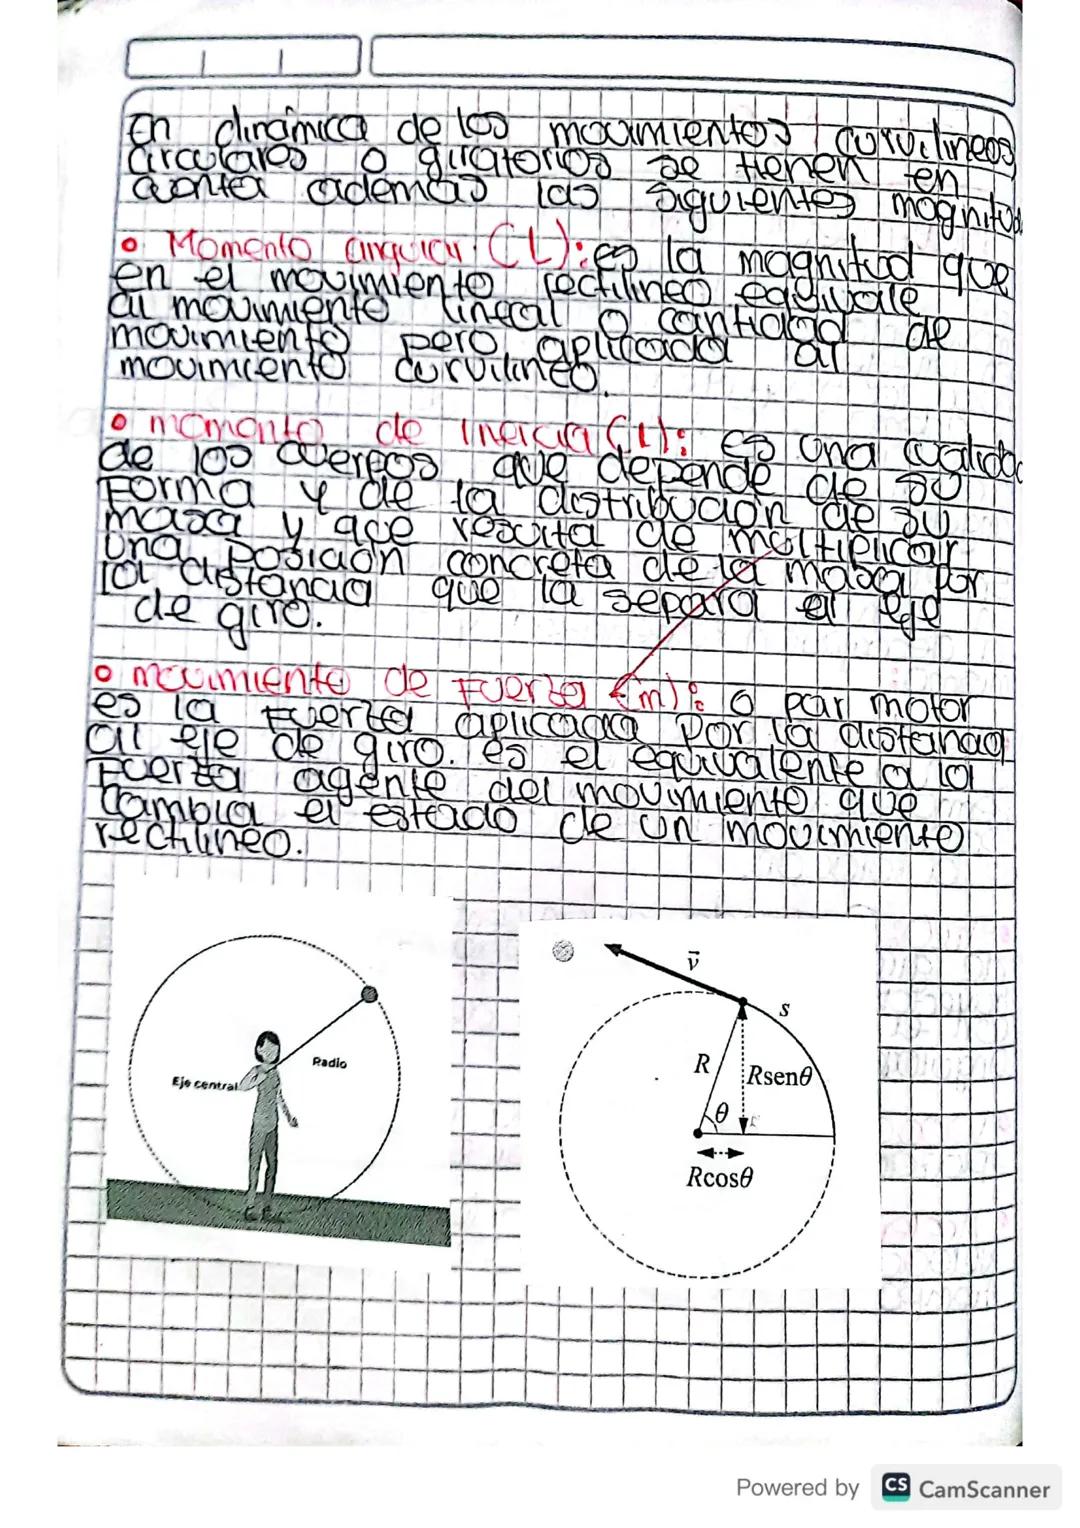 En dinámica de los movimientos curvilineos,
circulares o giratorios se tienen en
cuenta además las siguientes magnitud
• Momento angular (L): es la magnitud que
en el movimiento rectilineo equivale
al movimiento lineal o cantidad de
movimiento pero aplicada al
movimiento curvilineo.
• momento de Inercia (I): es una cualida
de los cuerpos que depende de su
Forma y de la distribución de su
masa y que resulta de multiplicar
una posición concreta de la masa por
la distancia que la separa el eje
de giro.
• movimiento de Fuerza (m): o par motor
es la Fuerza aplicada por la distancia
al eje de giro. es el equivalente a la
Fuerza agente del movimiento que
cambia el estado de un movimiento
rectilineo.
Radio
Eje central
v
s
R
Rsenθ
θ
Rcosθ
Powered by CS CamScanner